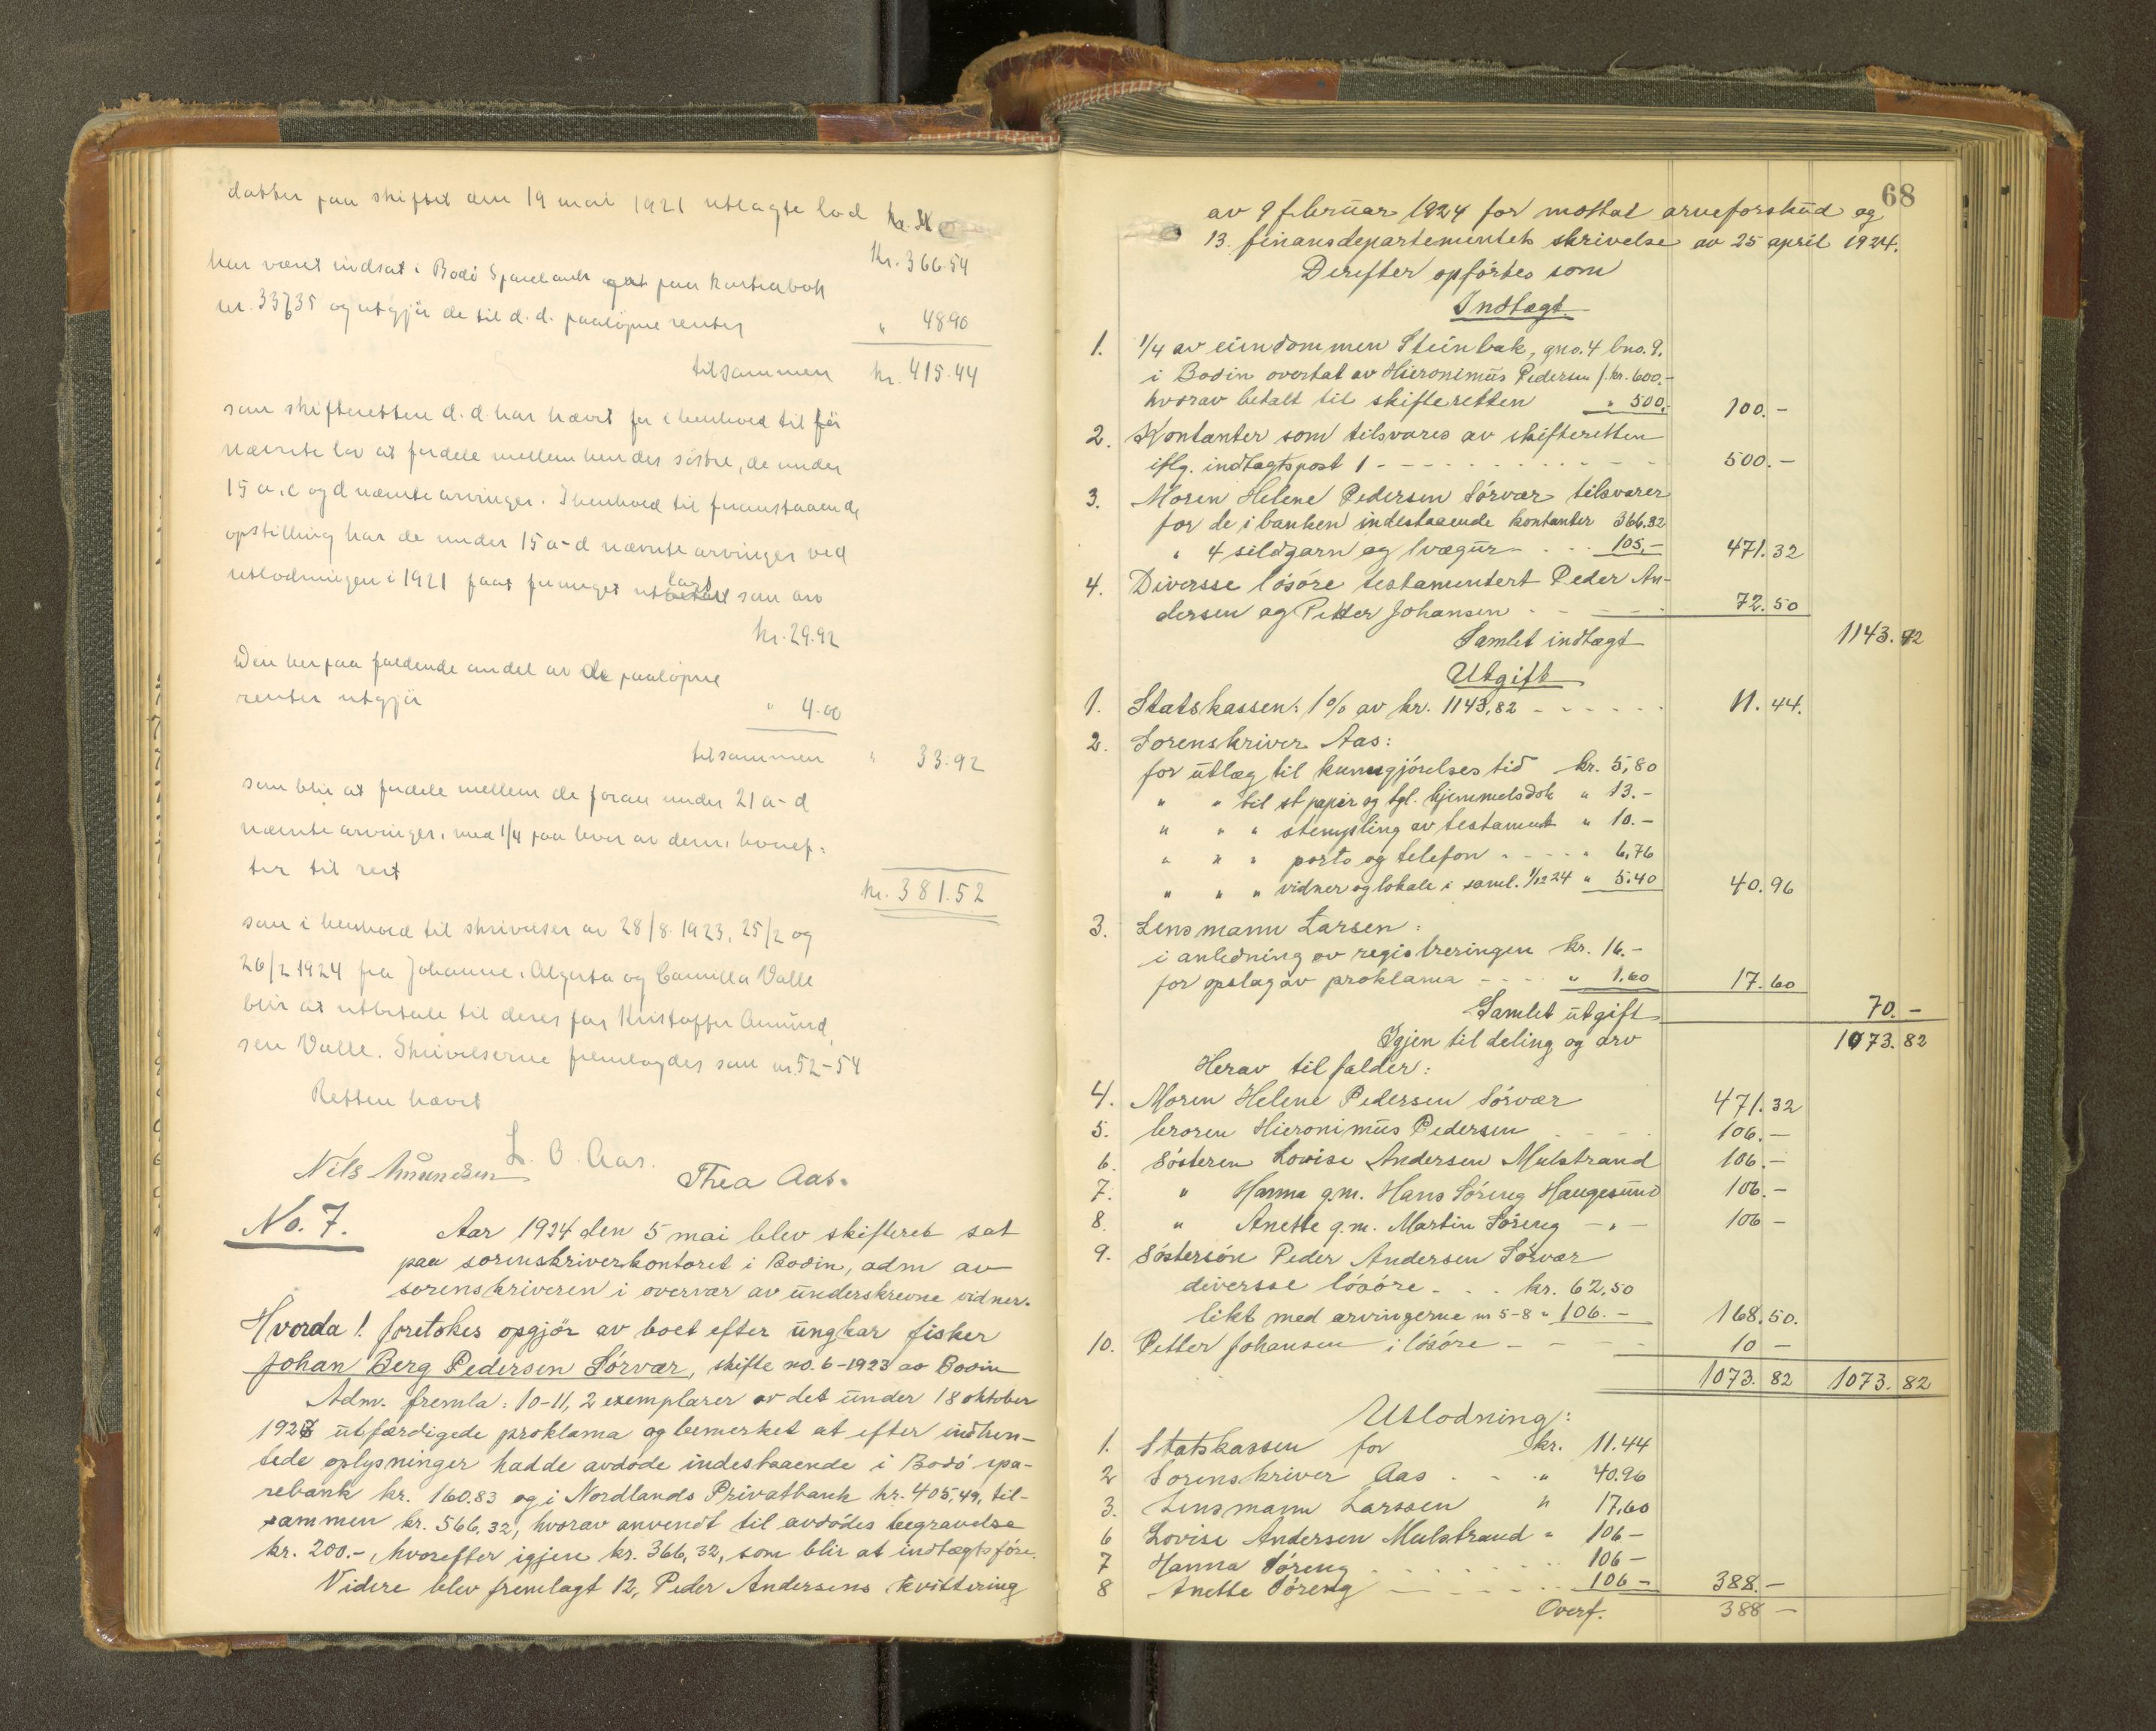 datter paa skiftet den 19 mai 1921 utlagte lod
Kr. 366.54
har været indsat i Bodö Sparebank paa kontrabok
nr. 33735 og utgjör de til d.d. paalöpne renter " 48.90
tilsammen kr. 415.44
som skifteretten d.d. har hævet for i henhold til för
nævnte lov at fordele mellem hendes söstre, de under
15 a, c og d nævnte arvinger. I henhold til foranstaaende
opstilling har de under 15 a-d nævnte arvinger ved
utlodningen i 1921 faat formeget utlagt som arv
kr. 29.92
Den herpaa faldende andel av de paalöpne
renter utgjör " 4.00
tilsammen " 33.92
som blir at fordele mellem de foran under 21 a-d
nævnte arvinger, med 1/4 paa hver av dem, hvoref-
ter til rest kr. 381.52
som i henhold til skrivelser av 28/8 1923, 25/2 og
26/2 1924 fra Johanne, Algerta og Camilla Valle
blir at utbetale til deres far Kristoffer Amund
sen Valle. Skrivelserne fremlagdes som nr. 52-54
Retten hævet
L. O. Aas.
Nils Amundsen Thea Aas.
No. 7. Aar 1924 den 5 mai blev skifteret sat
paa sorenskriverkontoret i Bodin, adm av
sorenskriveren i overvær av underskrevne vidner.
Hvorda! foretokes opgjör av boet efter ungkar fisker
Johan Berg Pedersen Sörvær, skifte no. 6-1923 av Bodin
Adm. fremla: 10-11, 2 exemplarer av det under 18 oktober
1923 utfærdigede proklama og bemerket at efter indhen-
tede oplysninger hadde avdöde indestaaende i Bodö spa-
rebank kr. 160.83 og i Nordlands Privatbank kr. 405,49, til-
sammen kr. 566,32, hvorav anvendt til avdödes begravelse
kr. 200.-, hvorefter igjen kr. 366,32, som blir at indtægtsföre.
Videre blev fremlagt 12, Peder Andersens kvittering
68
av 9 februar 1924 for mottat arveforskud og
13. finansdepartementets skrivelse av 25 april 1924.
Derefter opförtes som
Indtægt
1. 1/4 av eiendommen Steinbak, gno. 4 bno. 9.
i Bodin overtat av Hieronimus Pedersen f. kr. 600.-
hvorav betalt til skifteretten " 500.- 100.-
2. Kontanter som tilsvares av skifteretten
iflg. indtægtspost 1 - - - 500.-
3. Moren Helene Pedersen Sörvær tilsvarer
for de i banken indestaaende kontanter 366.32
" 4 sildgarn og lvægur - . . 105,- 471.32
4. Diversse lösöre testamentert Peder An-
dersen og Petter Johansen - - - 72.50
Samlet indtægt 1143.82
Utgift
1. Statskassen: 1% av kr. 1143,82 - - - 11.44.
2. Sorenskriver Aas:
for utlæg til kunngjörelsestid kr. 5,80
" " til st papir og tgl. hjemmelsdok " 13.-
" " " stempling av testament " 10.-
" " " porto og telefon - - - " 6,76
" " " vidner og lokale i saml. 1/12 24 " 5.40 40.96
3. Lensmann Larsen:
i anledning av registreringen kr. 16.-
for opslag av proklama - - - " 1.60 17.60
Samlet utgift 70.-
Igjen til deling og arv 1073.82
Herav tilfalder:
4. Moren Helene Pedersen Sörvær 471.32
5. broren Hieronimus Pedersen - - - 106.-
6. Sösteren Lovise Andersen Mulstrand 106.-
7. " Hanna g.m. Hans Söreng Haugesund 106.-
8. " Anette g.m. Martin Söreng - " - 106 -
9. Söstersön Peder Andersen Sörvær
diversse lösöre - . . kr. 62.50
likt med arvingerne nr 5-8 " 106.- 168.50.
10. Petter Johansen i lösöre - - - 10 -
1073.82 1073.82
Utlodning:
1. Statskassen for kr. 11.44
2 Sorenskriver Aas . - . " 40.96
3. Lensmann Larssen " 17.60
6 Lovise Andersen Mulstrand " 106 -
7 Hanna Söreng . . . . 106 -
8 Anette Söreng - - - . . 106 - 388.-
Overf. 388 -